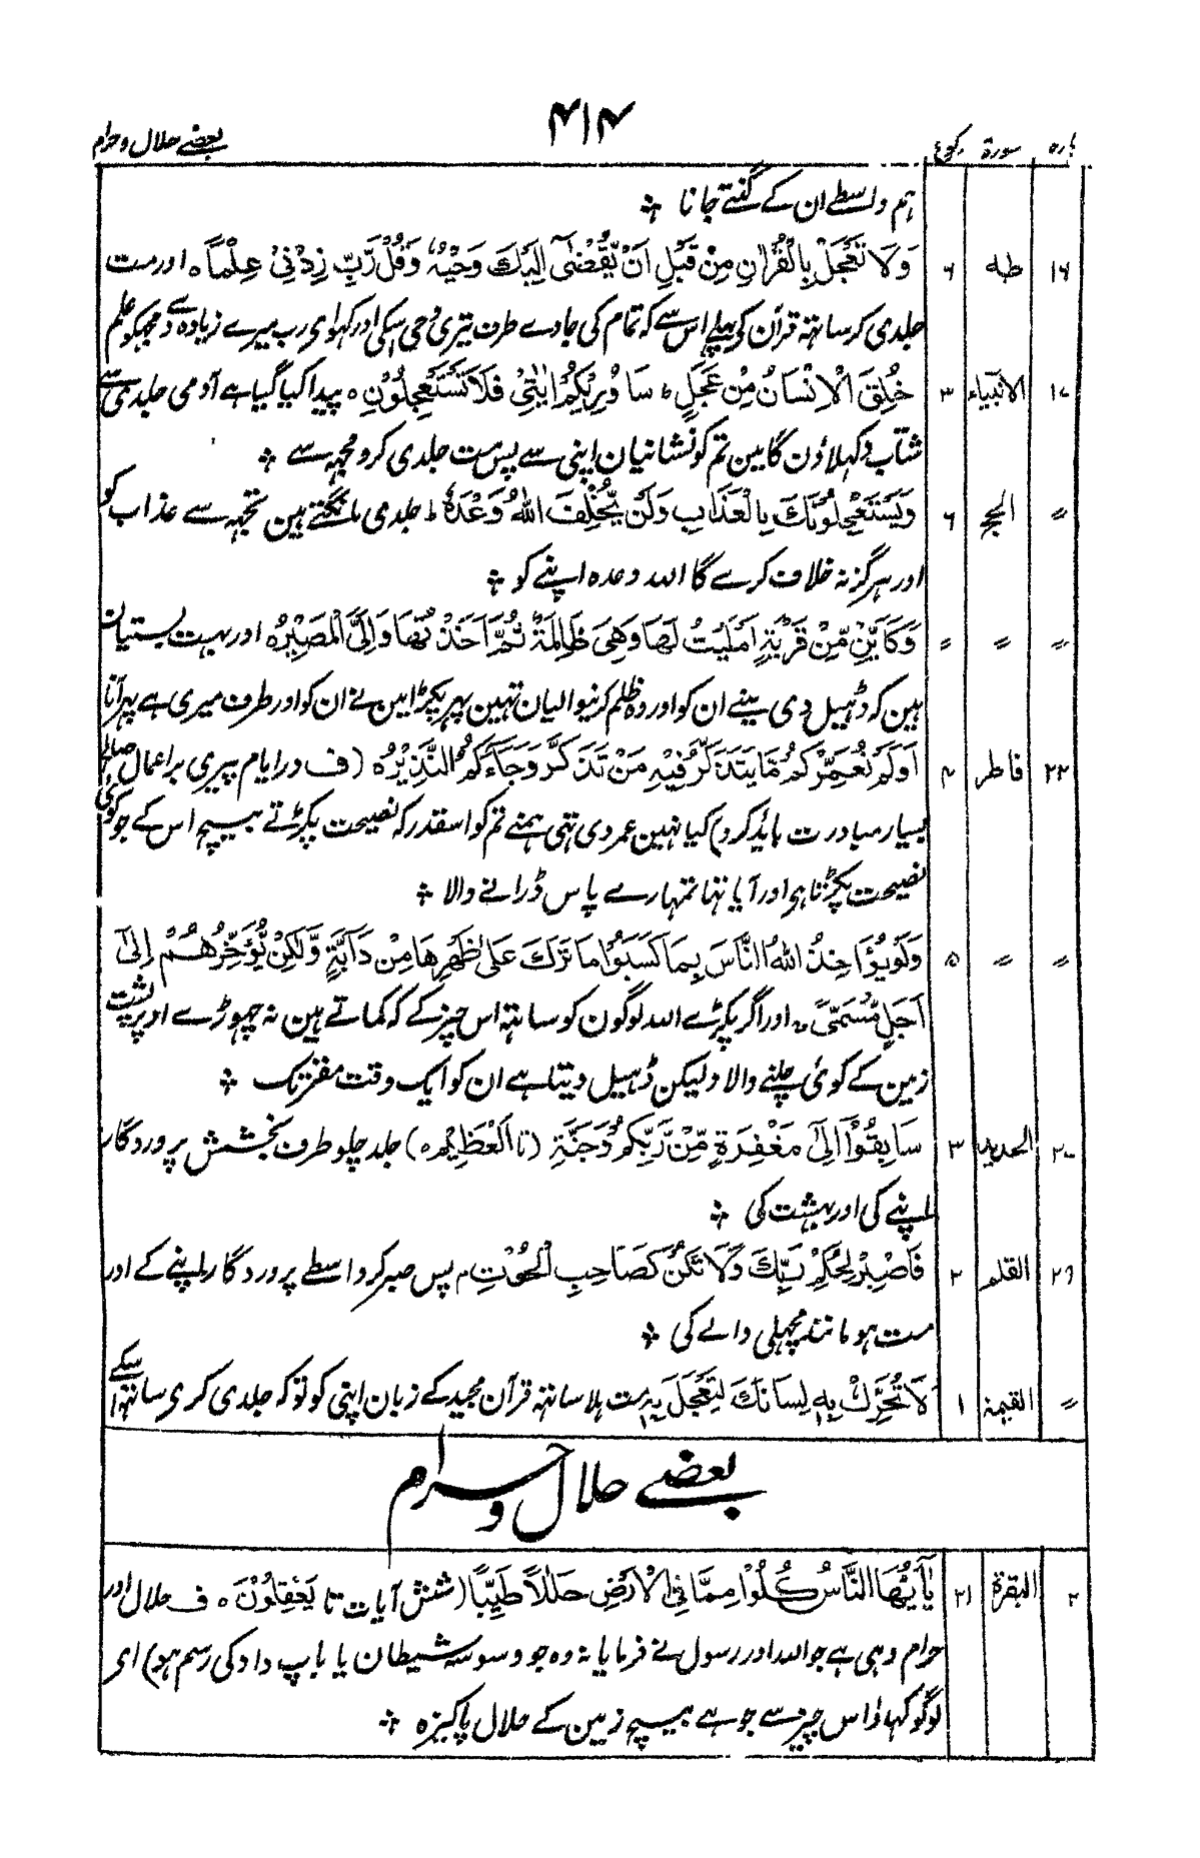 پارہ سورۃ رکوع ۴۱۴ بعضے حلال و حرام
ہم واسطے ان کے گنتے جانا ؞
۱۶ طہ ۶ وَلَا تَعْجَلْ بِالْقُرْاٰنِ مِنْ قَبْلِ اَنْ يُّقْضٰٓى اِلَيْكَ وَحْيُهٗ وَقُلْ رَّبِّ زِدْنِيْ عِلْمًا ہ اور مت
جلدی کر ساتہ قرآن کو پہلے اس سے کہ تمام کی جادے طرف تیری وحی اسکی اور کہو ای رب میرے زیادہ دے مجہکو علم
۱۷ الانبیاء ۳ خُلِقَ الْاِنْسَانُ مِنْ عَجَلٍ ط سَاُورِيْكُمْ اٰيٰتِيْ فَلَا تَسْتَعْجِلُوْنِ ہ پیدا کیا گیا ہے آدمی جلدی سے
شتاب دکہلاؤن گا مین تم کو نشانیان اپنی سے پس مت جلدی کرو مجہہ سے ؞
〃 الحج ۶ وَيَسْتَعْجِلُوْنَكَ بِالْعَذَابِ وَلَنْ يُّخْلِفَ اللّٰهُ وَعْدَهٗ ط جلدی مانگتے ہین تجہہ سے عذاب کو
اور ہرگز نہ خلاف کرے گا اللہ وعدہ اپنے کو ؞
〃 〃 〃 وَكَاَيِّنْ مِّنْ قَرْيَةٍ اَمْلَيْتُ لَهَا وَهِيَ ظَالِمَةٌ ثُمَّ اَخَذْتُهَا وَاِلَيَّ الْمَصِيْرُ ہ اور بہت بستیان
ہین کہ ڈہیل دی مینے ان کو اور وہ ظلم کرنیوالیان تہین پہر پکڑا مین نے ان کو اور طرف میری ہے پہر آنا
۲۲ فاطر ۴ اَوَلَمْ نُعَمِّرْكُمْ مَّا يَتَذَكَّرُ فِيْهِ مَنْ تَذَكَّرَ وَجَآءَكُمُ النَّذِيْرُ ہ (ف در ایام پیری بر اعمال صالحہ
بسیار مبادرت باید کرد) کیا نہین عمر دی تہی ہمنے تم کو اسقدر کہ نصیحت پکڑتے بیچ اس کے جو کوئی
نصیحت پکڑتا ہے اور آیا تہا تمہارے پاس ڈرانے والا ؞
〃 〃 ۵ وَلَوْ يُؤَاخِذُ اللّٰهُ النَّاسَ بِمَا كَسَبُوْا مَا تَرَكَ عَلٰى ظَهْرِهَا مِنْ دَآبَّةٍ وَّلٰكِنْ يُّؤَخِّرُهُمْ اِلٰٓى
اَجَلٍ مُّسَمًّى ہ اور اگر پکڑے اللہ لوگون کو ساتہ اس چیز کے کہ کماتے ہین نہ چہوڑے اوپر پشت
زمین کے کوئی چلنے والا ولیکن ڈہیل دیتا ہے ان کو ایک وقت مقرر تک ؞
۲۷ الحدید ۳ سَابِقُوْٓا اِلٰى مَغْفِرَةٍ مِّنْ رَّبِّكُمْ وَجَنَّةٍ (تا الْعَظِيْمِ ہ) جلد چلو طرف بخشش پروردگار
اپنے کی اور بہشت کی ؞
۲۹ القلم ۲ فَاصْبِرْ لِحُكْمِ رَبِّكَ وَلَا تَكُنْ كَصَاحِبِ الْحُوْتِ م پس صبر کر واسطے پروردگار اپنے کے اور
مت ہو مانند مچہلی والے کی ؞
〃 القیمۃ ۱ لَا تُحَرِّكْ بِهٖ لِسَانَكَ لِتَعْجَلَ بِهٖ مت ہلا ساتہ قرآن مجید کے زبان اپنی کو تو کہ جلدی کری ساتہہ اسکے
بعضے حلال و حرام
۲ البقرۃ ۲۱ يٰٓاَيُّهَا النَّاسُ كُلُوْا مِمَّا فِي الْاَرْضِ حَلٰلًا طَيِّبًا (شش آیات تا يَعْقِلُوْنَ ہ ف حلال اور
حرام وہی ہے جو اللہ اور رسول نے فرمایا نہ وہ جو وسوسہ شیطان یا باپ دادکی رسم ہو) ای
لوگو کہاؤ اس چیز سے جو ہے بیچ زمین کے حلال پاکیزہ ؞